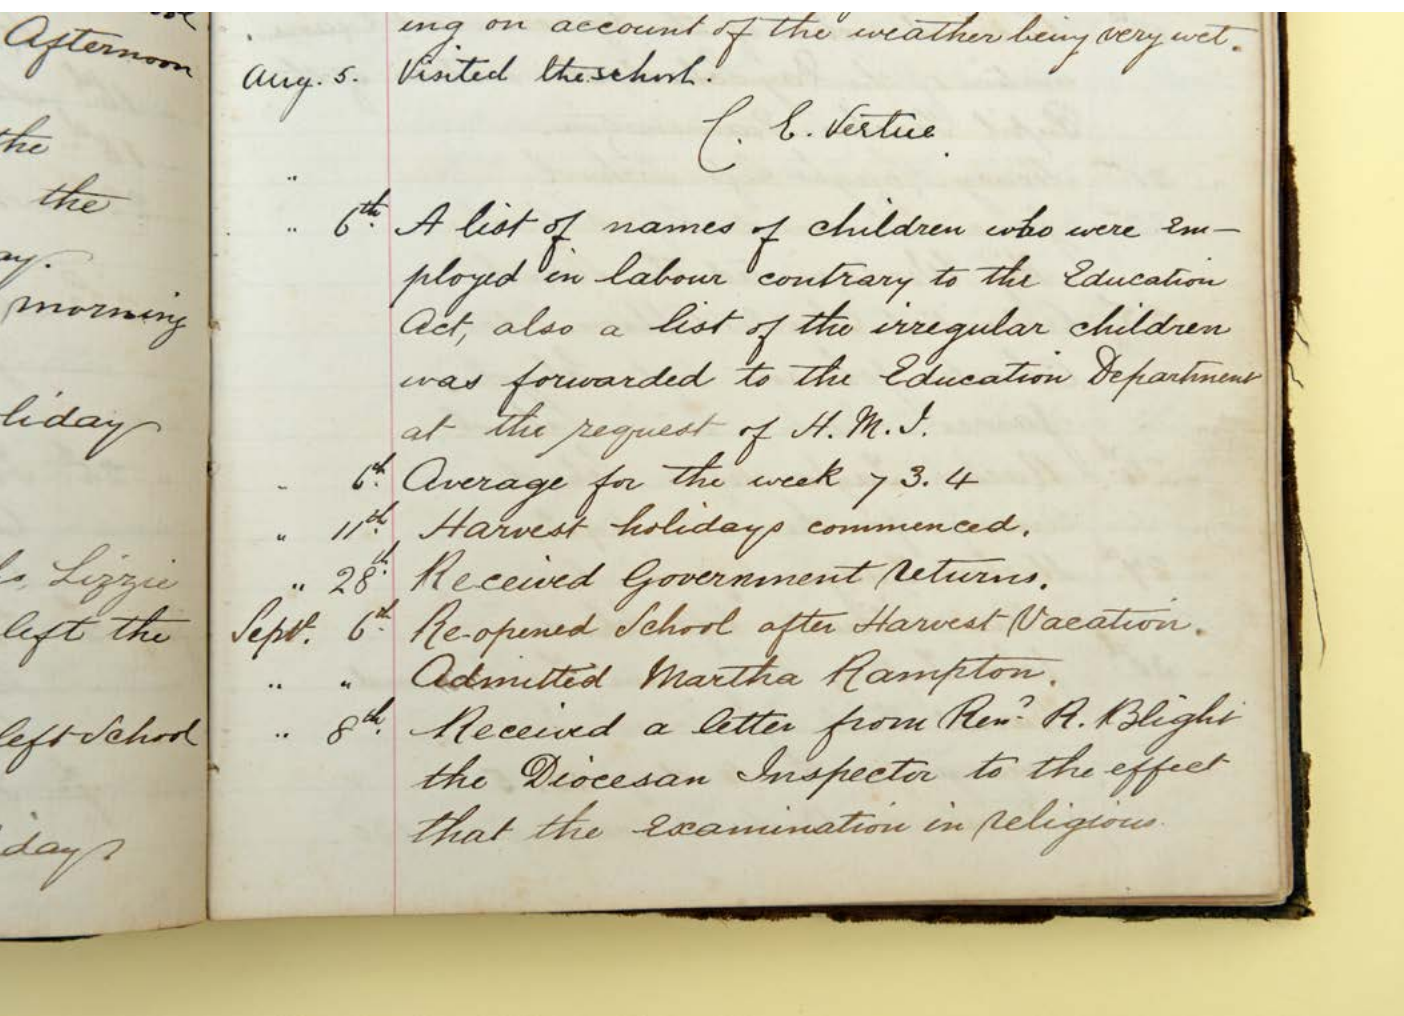 Afternoon
the
the
ay.
morning
liday
Lizzie
left the
left School
days
ing on account of the weather being very wet.
Aug. 5. Visited the school.
C. E. Vertue
"
" 6th. A list of names of children who were em-
ployed in labour contrary to the Education
Act, also a list of the irregular children
was forwarded to the Education Department
at the request of H.M.I.
" 6th. Average for the week 73.4
" 11th. Harvest holidays commenced.
" 28th. Received Government returns.
Sept. 6th. Re-opened School after Harvest Vacation.
" " Admitted Martha Rampton.
" 8th. Received a letter from Revd. R. Blight
the Diocesan Inspector to the effect
that the Examination in religious